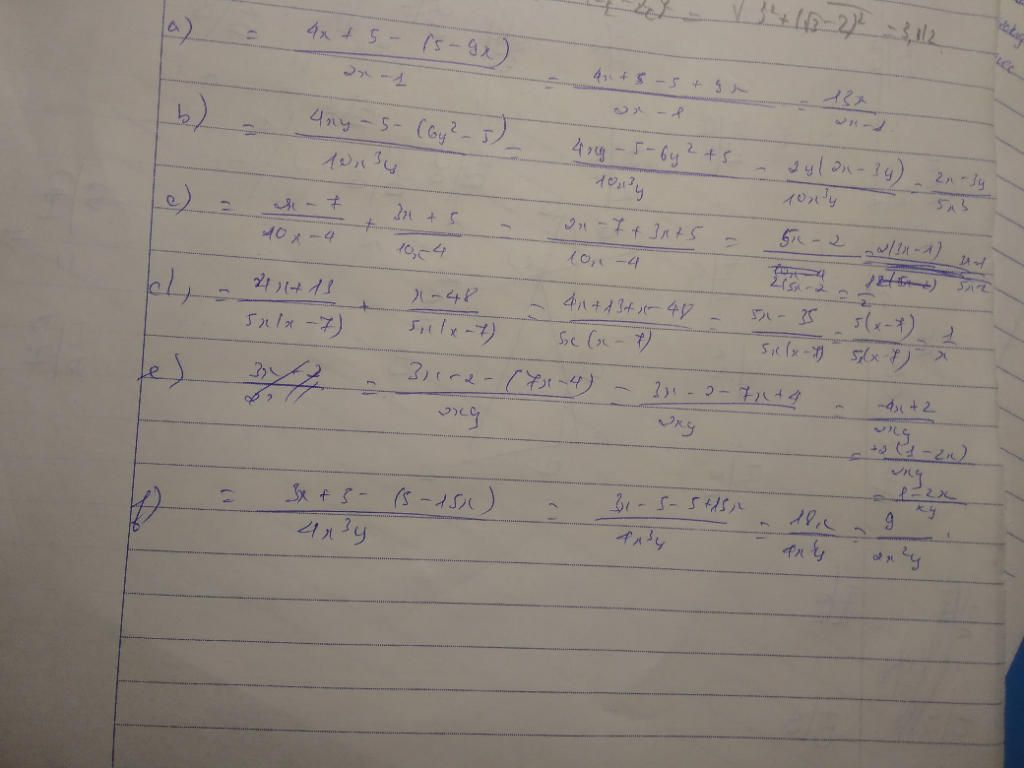 = √3²+(√3-2)² = 3,112
a) = 4x + 5 - (5 - 9x) / 2x - 1 = 4x + 5 - 5 + 9x / 2x - 1 = 13x / 2x - 1
b) = 4xy - 5 - (6y² - 5) / 10x³y = 4xy - 5 - 6y² + 5 / 10x³y = 2y(2x - 3y) / 10x³y = 2x - 3y / 5x³
c) = 2x - 7 / 10x - 4 + 3x + 5 / 10x - 4 = 2x - 7 + 3x + 5 / 10x - 4 = 5x - 2 / 2(5x - 2 = 1 / 2
d) = 4x + 13 / 5x(x - 7) + x - 48 / 5x(x - 7) = 4x + 13 + x - 48 / 5x(x - 7) = 5x - 35 / 5x(x - 7) = 5(x - 7) / 5x(x - 7) = 1 / x
e) = 3x - 2 - (7x - 4) / 2xy = 3x - 2 - 7x + 4 / 2xy = -4x + 2 / 2xy
= 2(1 - 2x) / 2xy
= 1 - 2x / xy
f) = 3x + 5 - (5 - 15x) / 4x³y = 3x - 5 - 5 + 15x / 4x³y = 18x / 4x³y = 9 / 2x²y